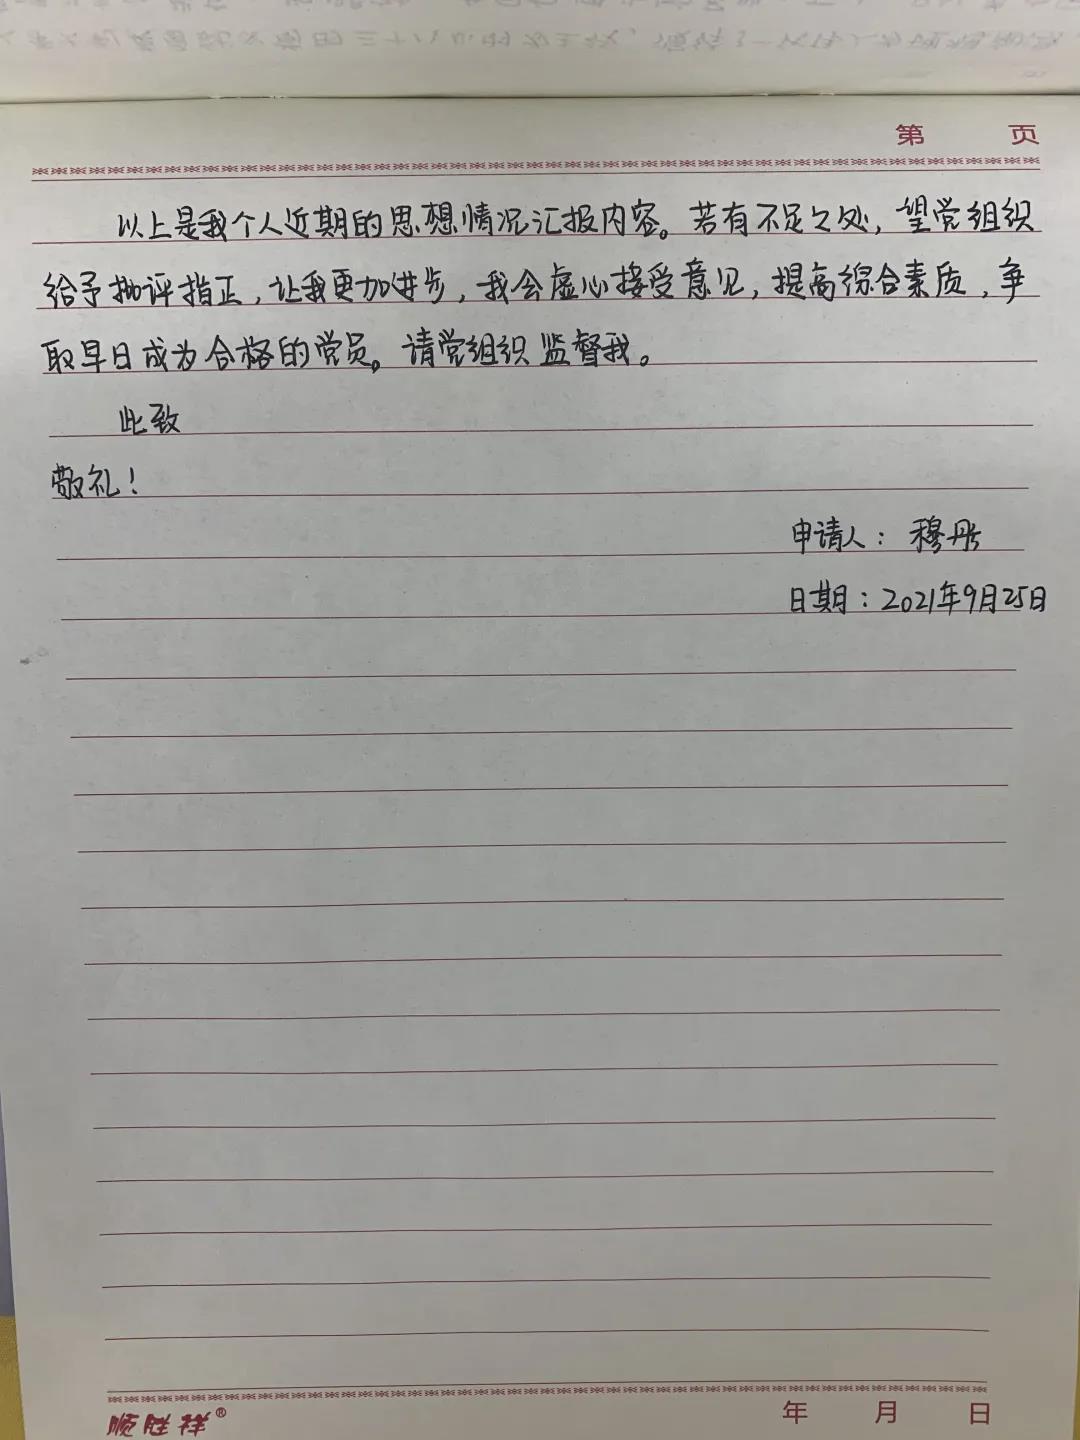 第 页
以上是我个人近期的思想情况汇报内容。若有不足之处，望党组织
给予批评指正，让我更加进步，我会虚心接受意见，提高综合素质，争
取早日成为合格的党员。请党组织监督我。
此致
敬礼！
申请人：穆彤
日期：2021年9月25日
顺胜祥®
年 月 日